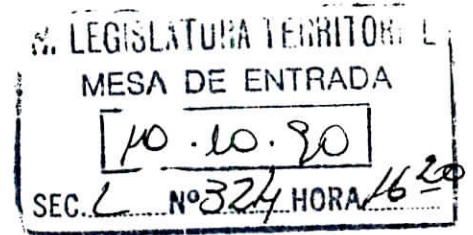 H. LEGISLATURA TERRITORIAL
MESA DE ENTRADA
10.10.90
SEC. L Nº 324 HORA 16 20